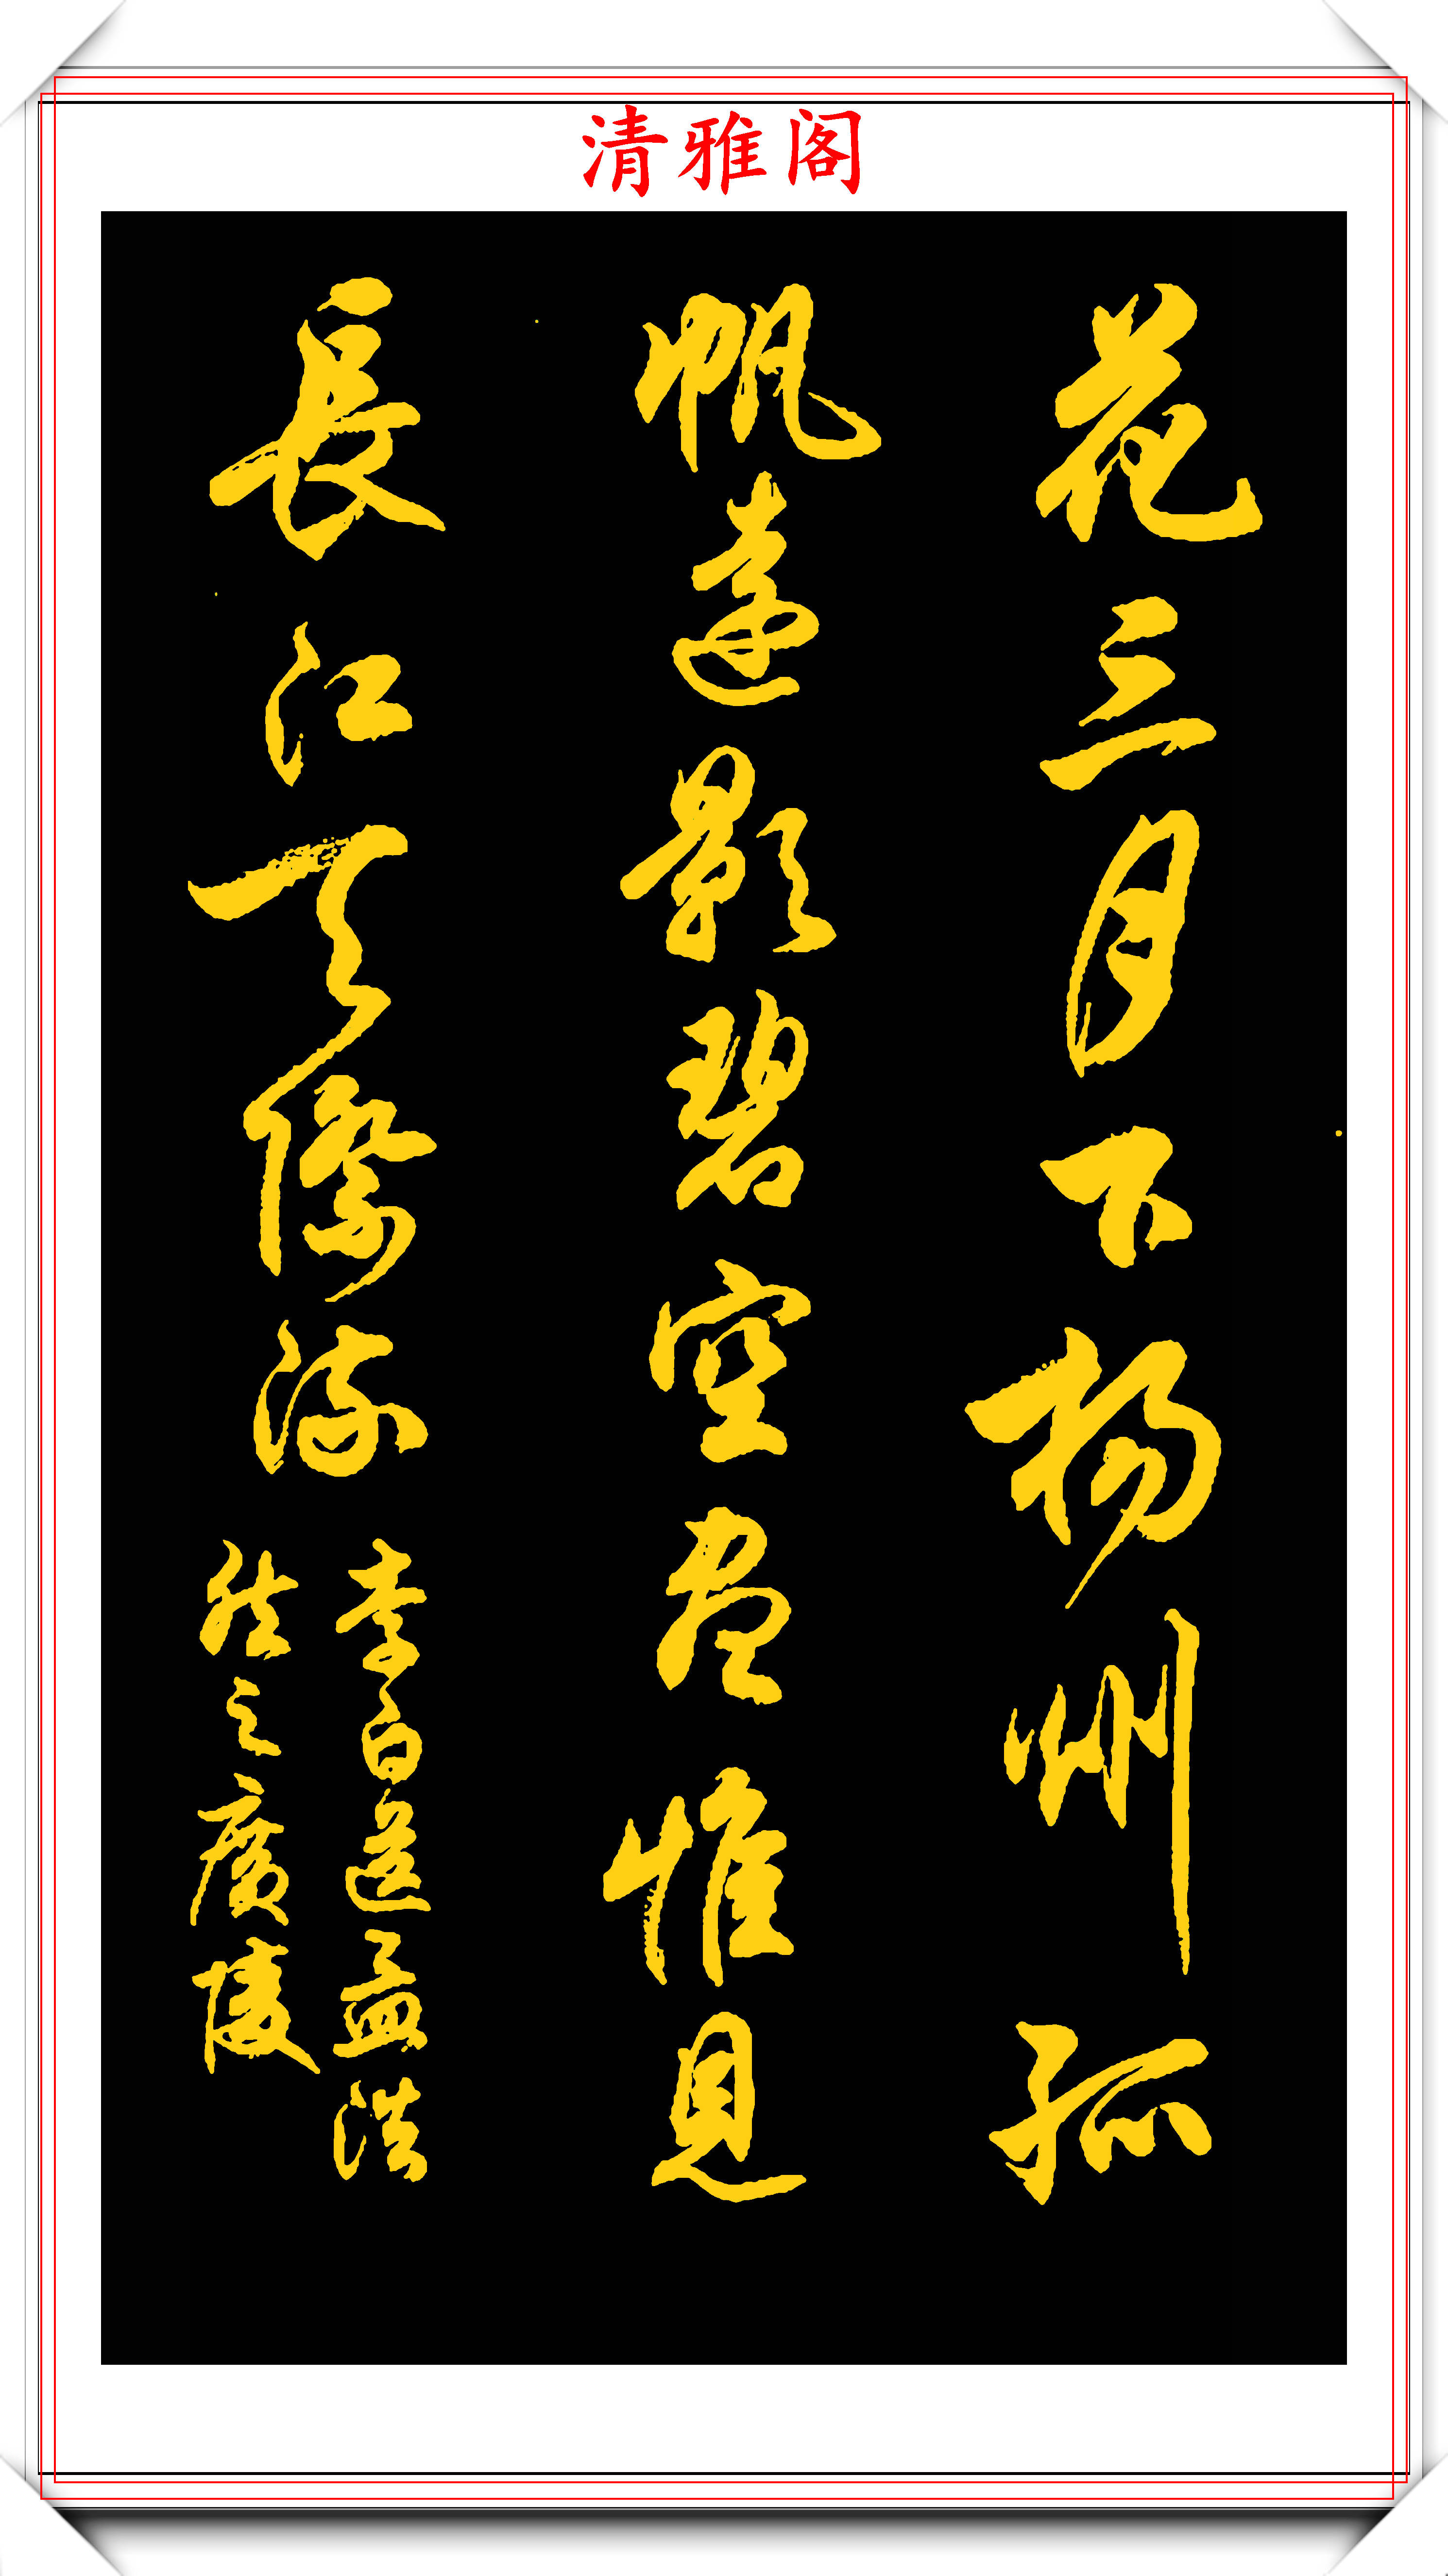 清雅阁
花三月下扬州孤
帆远影碧空尽惟见
長江天際流
李白送孟浩
然之廣陵